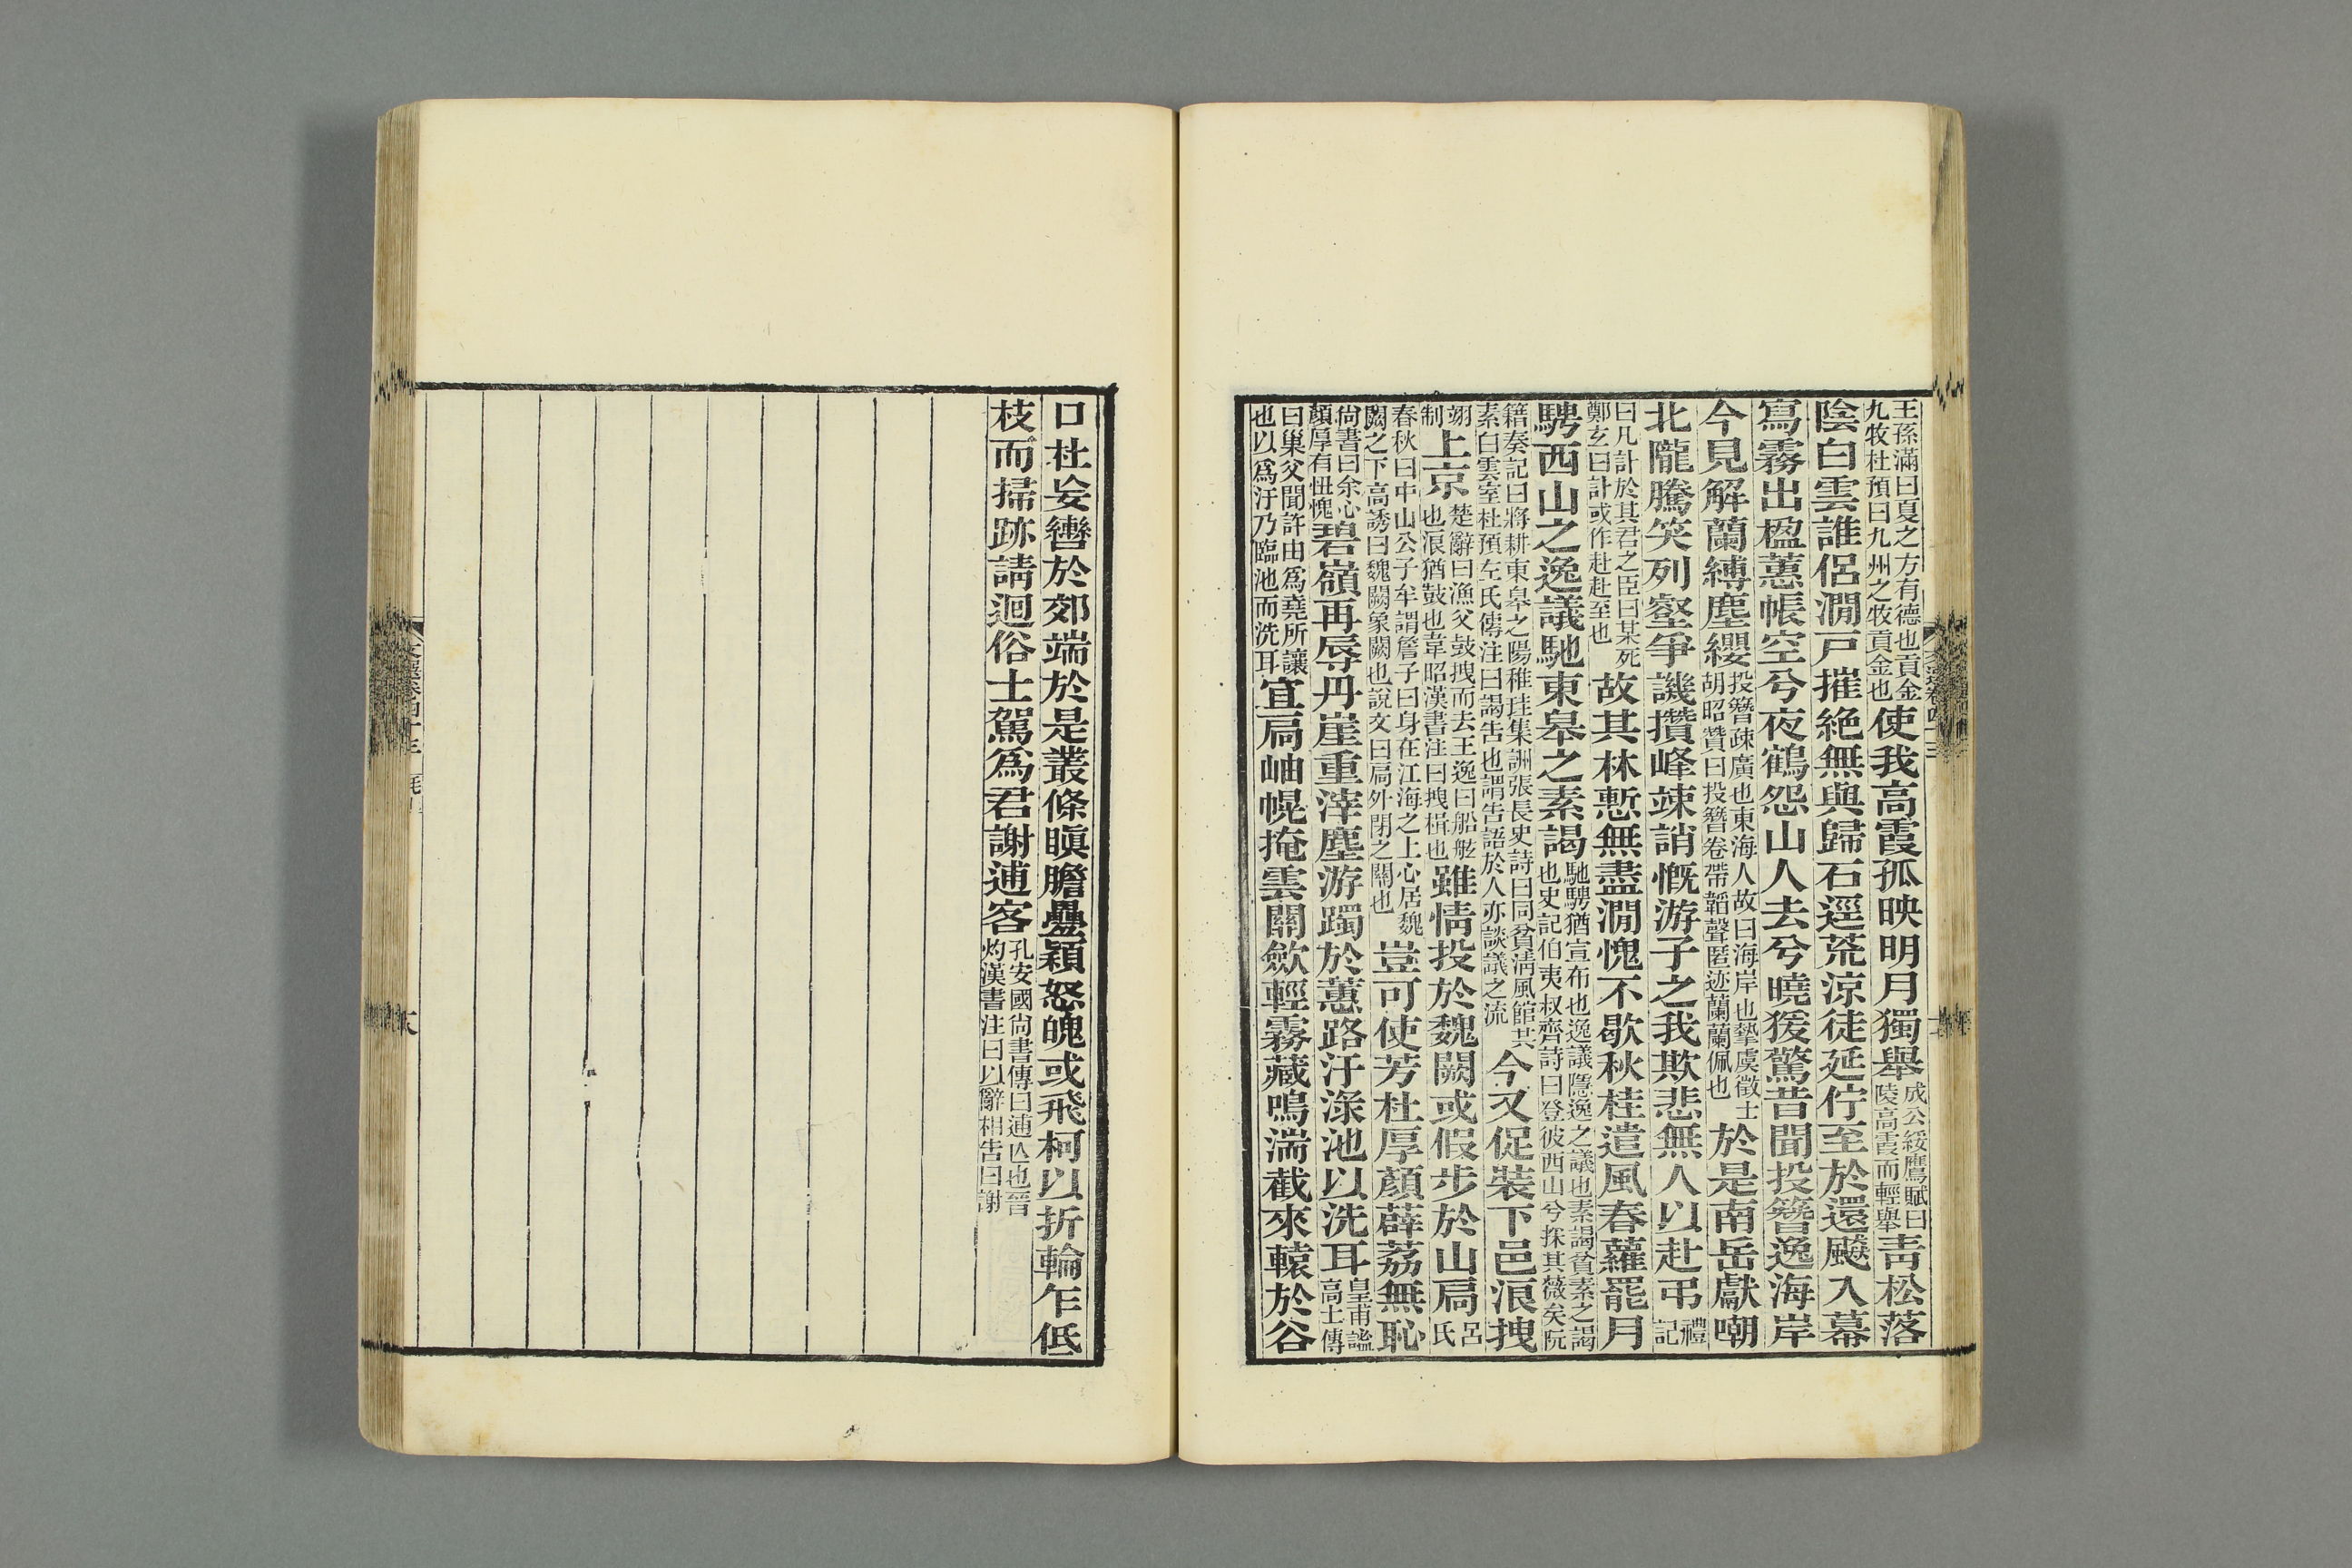 王孫滿曰夏之方有德也貢金九牧杜預曰九州之牧貢金也使我高霞孤映明月獨舉成公綏鷹賦曰陵高霞而輕舉靑松落
陰白雲誰侶澗戸摧絶無與歸石逕荒涼徒延佇至於還飈入幕
寫霧出楹蕙帳空兮夜鶴怨山人去兮曉猨驚昔聞投簪逸海岸
今見解蘭縛塵纓投簪疎廣也東海人故曰海岸也摯虞徵士胡昭贊曰投簪卷帶韜聲匿迹蘭蘭佩也於是南岳獻嘲
北隴騰笑列壑爭譏攢峰竦誚慨游子之我欺悲無人以赴弔禮記
曰凡訃於其君之臣曰某死鄭玄曰訃或作赴赴至也故其林慙無盡澗愧不歇秋桂遣風春蘿罷月
騁西山之逸議馳東皋之素謁馳騁猶宣布也逸議隱逸之議也素謁貧素之謁也史記伯夷叔齊詩曰登彼西山兮採其薇矣阮
籍奏記曰將耕東皋之陽稚珪集詶張長史詩曰同貧淸風館共素白雲室杜預左氏傳注曰謁告也謂告語於人亦談議之流今又促裝下邑浪拽
上京楚辭曰漁父鼓拽而去王逸曰船舷也浪猶鼓也韋昭漢書注曰拽楫也雖情投於魏闕或假步於山扃呂氏
春秋曰中山公子牟謂詹子曰身在江海之上心居魏闕之下高誘曰魏闕象闕也說文曰扃外閉之關也豈可使芳杜厚顏薜荔無恥
尙書曰余心顏厚有忸愧碧嶺再辱丹崖重滓塵游躅於蕙路汙淥池以洗耳皇甫謐高士傳
曰巢父聞許由爲堯所讓也以爲汙乃臨池而洗耳宜扃岫幌掩雲關歛輕霧藏鳴湍截來轅於谷
口杜妄轡於郊端於是叢條瞋膽疊穎怒魄或飛柯以折輪乍低
枝而掃跡請迴俗士駕爲君謝逋客孔安國尙書傳曰逋亾也晉灼漢書注曰以辭相告曰謝